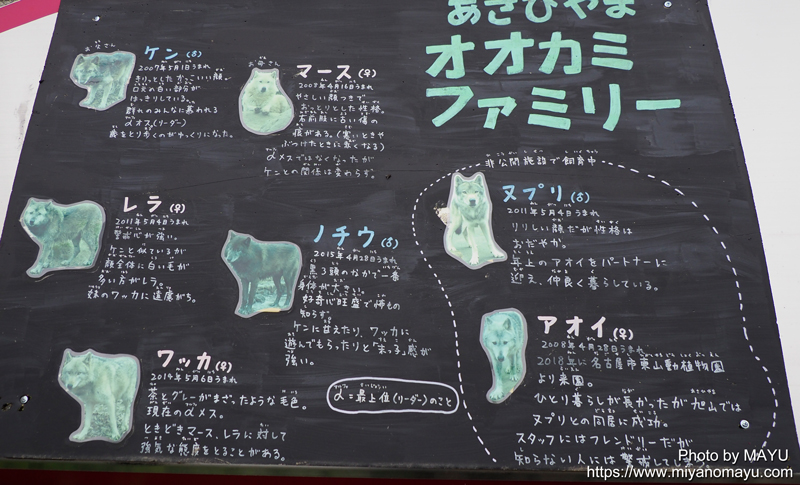 あさひやま
オオカミ
ファミリー
お父さん
ケン(♂)
2007年5月1日うまれ
きりっとしたかっこいい顔。
口元の白い部分が
はっきりしている。
群れのみんなに慕われる
αオス(リーダー)
歳をとり歩くのがゆっくりになった。
お母さん
マース(♀)
2008年4月16日うまれ
やさしい顔つきで、
おっとりとした性格。
右前肢に古い傷の
痕がある。(寒いときや
ぶつけたときに黒くなる)
αメスではなくなったが
ケンとの関係は変わらず。
レラ(♀)
2011年5月4日うまれ
警戒心が強い。
ケンと似ているが
顔全体に白い毛が
多い方がレラ。
妹のワッカに遠慮がち。
ノチウ(♂)
2015年4月28日うまれ
黒3頭のなかで一番
身体が大きい。
好奇心旺盛で怖もの
知らず。
ケンに甘えたり、ワッカに
遊んでもらったりと「末っ子」感が
強い。
ワッカ(♀)
2014年5月6日うまれ
茶とグレーがまざったような毛色。
現在のαメス。
ときどきマース、レラに対して
強気な態度をとることがある。
α=最上位(リーダー)のこと
非公開施設で飼育中
ヌプリ(♂)
2011年5月4日うまれ
りりしい顔だが性格は
おだやか。
年上のアオイをパートナーに
迎え、仲良く暮らしている。
アオイ(♀)
2008年4月28日うまれ
2018年に名古屋市東山動植物園
より来園。
ひとり暮らしが長かったが旭山では
ヌプリとの同居に成功。
スタッフにはフレンドリーだが
知らない人には警戒してしまう。
Photo by MAYU
https://www.miyanomayu.com/